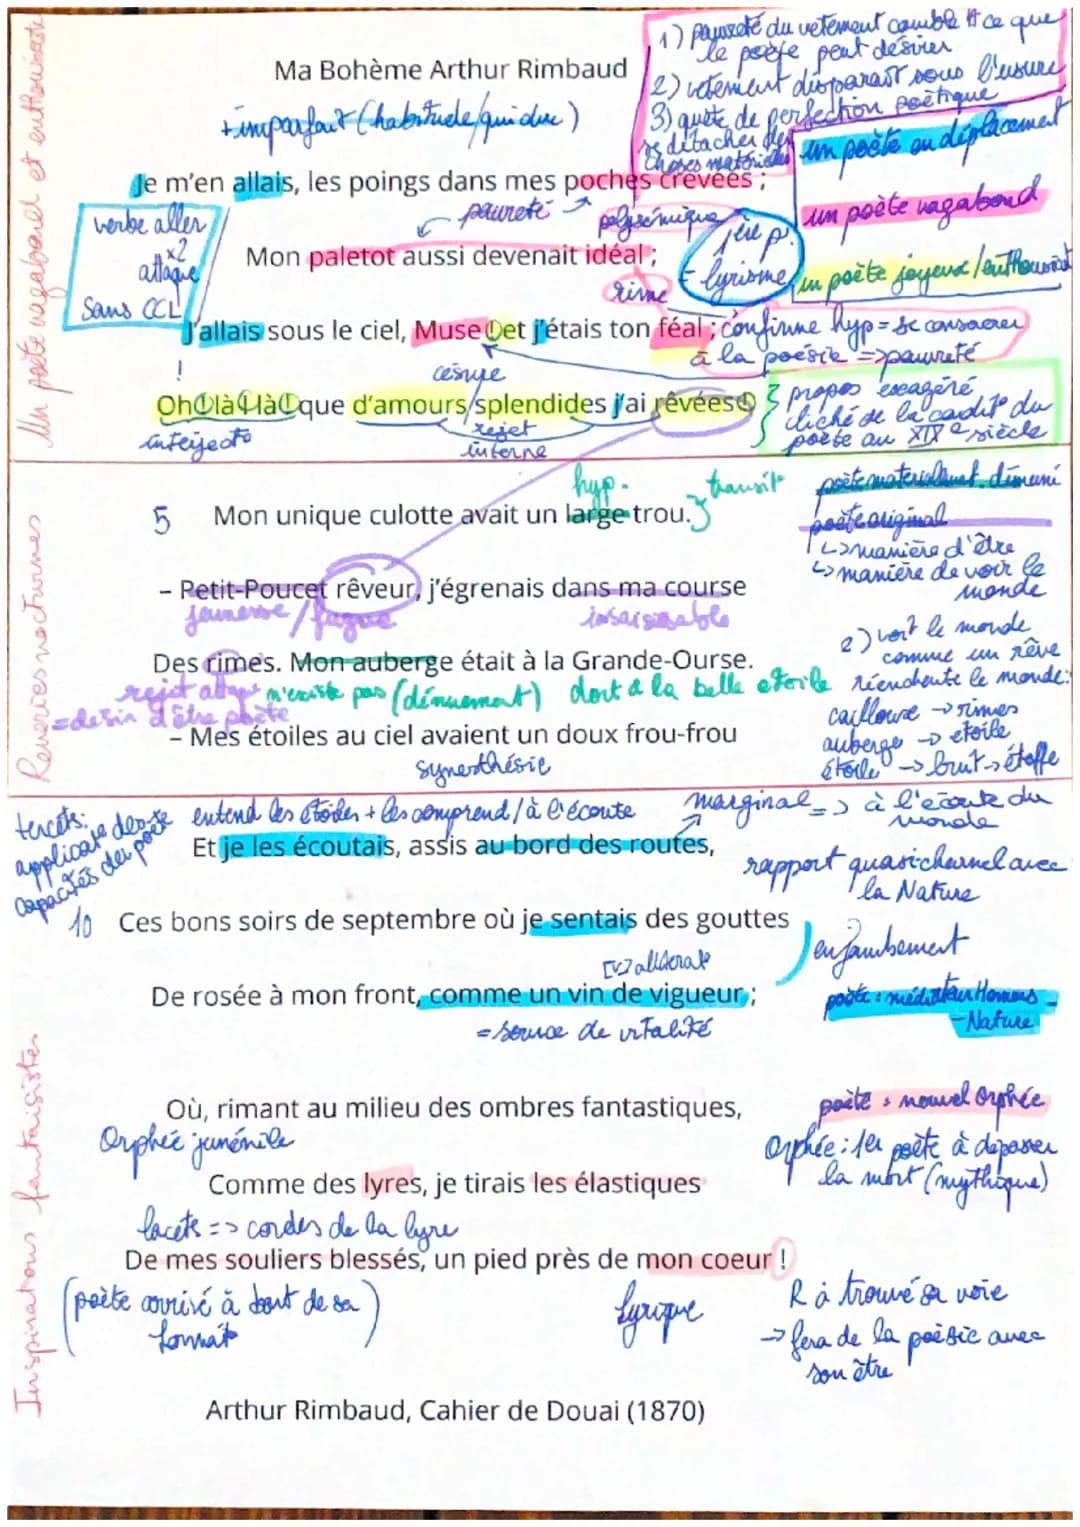 Un poète vagabond et enthousiaste
Ma Bohème Arthur Rimbaud
+ imparfait (habitude/qui dure)
1) pauvreté du vetement comble tt ce que
le poète peut désirer
2) vetement disparait sous l'usure
3) quete de perfection poètique
détacher des
choses matérielles
un poète en déplacement
un poète vagabond
un poète joyeux/enthousiast
Je m'en allais, les poings dans mes poches crevées ;
pauvreté
polysémique
verbe aller
x2
attaque
Sans CCL
Mon paletot aussi devenait idéal ;
rime
1ère p.
= lyrisme
J'allais sous le ciel, Muse ! et j'étais ton féal ;
confirme hyp = se consacrer
à la poésie => pauvreté
césure
!
Oh ! là ! là ! que d'amours splendides j'ai rêvées !
interject°
rejet
interne
propos exagéré
cliché de la condit° du
poète au XIXe siècle
Reveries nocturnes
hyp.
transit°
5 Mon unique culotte avait un large trou.
poète materiellemet. démuni
poète original
↳ manière d'être
↳ manière de voir le
monde
– Petit-Poucet rêveur, j'égrenais dans ma course
jeunesse / fugue
insaisissable
Des rimes. Mon auberge était à la Grande-Ourse.
rejet
n'existe pas (dénuement) dort à la belle etoile
= désir d'être poète
2) voit le monde
comme un rêve
réenchante le monde:
cailloux → rimes
auberge → etoile
étoile → bruit → étoffe
– Mes étoiles au ciel avaient un doux frou-frou
synesthésie
tercets:
applicat° des
capacités du poète
entend les étoiles + les comprend / à l'écoute
marginal => à l'écoute du
monde
Et je les écoutais, assis au bord des routes,
rapport quasi charnel avec
la Nature
10 Ces bons soirs de septembre où je sentais des gouttes
enjambement
[v] allitérat°
De rosée à mon front, comme un vin de vigueur ;
= source de vitalité
poète : médiateur Hommes -
- Nature
Inspirations fantaisistes
Où, rimant au milieu des ombres fantastiques,
Orphée juvénile
poète = nouvel Orphée
Orphée : 1er poète à dépasser
la mort (mythique)
Comme des lyres, je tirais les élastiques
lacets => cordes de la lyre
De mes souliers blessés, un pied près de mon coeur !
(poète arrivé à bout de sa
format°)
lyrique
R à trouvé sa voie
→ fera de la poèsie avec
son être
Arthur Rimbaud, Cahier de Douai (1870)